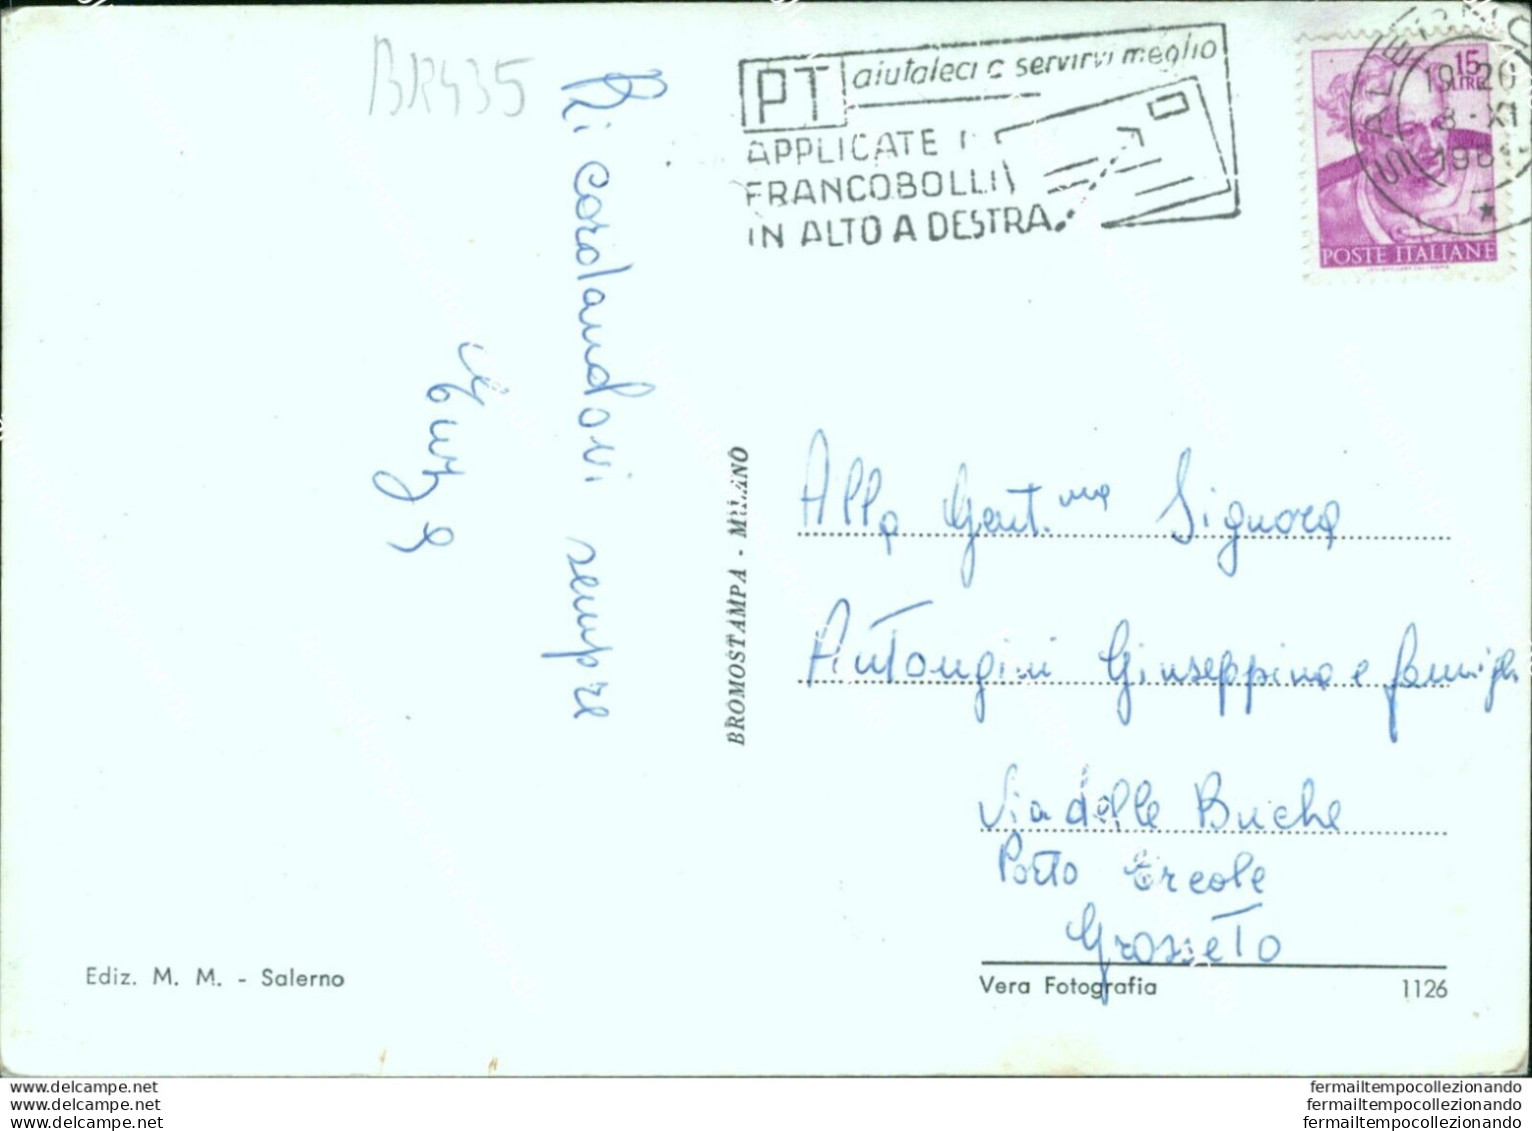 BR435
PT aiutateci a servirvi meglio
APPLICATE I
FRANCOBOLLI
IN ALTO A DESTRA
15
LIRE
POSTE ITALIANE
SALERNO
19-20
8 - XI
Ricordandovi sempre
BROMOSTAMPA - MILANO
Alla Gent.ma Signora
Antongini Giuseppina e famigli
Via delle Buche
Porto Ercole
Grosseto
Ediz. M. M. - Salerno
Vera Fotografia
1126
www.delcampe.net
www.delcampe.net
www.delcampe.net
fermailtempocollezionando
fermailtempocollezionando
fermailtempocollezionando